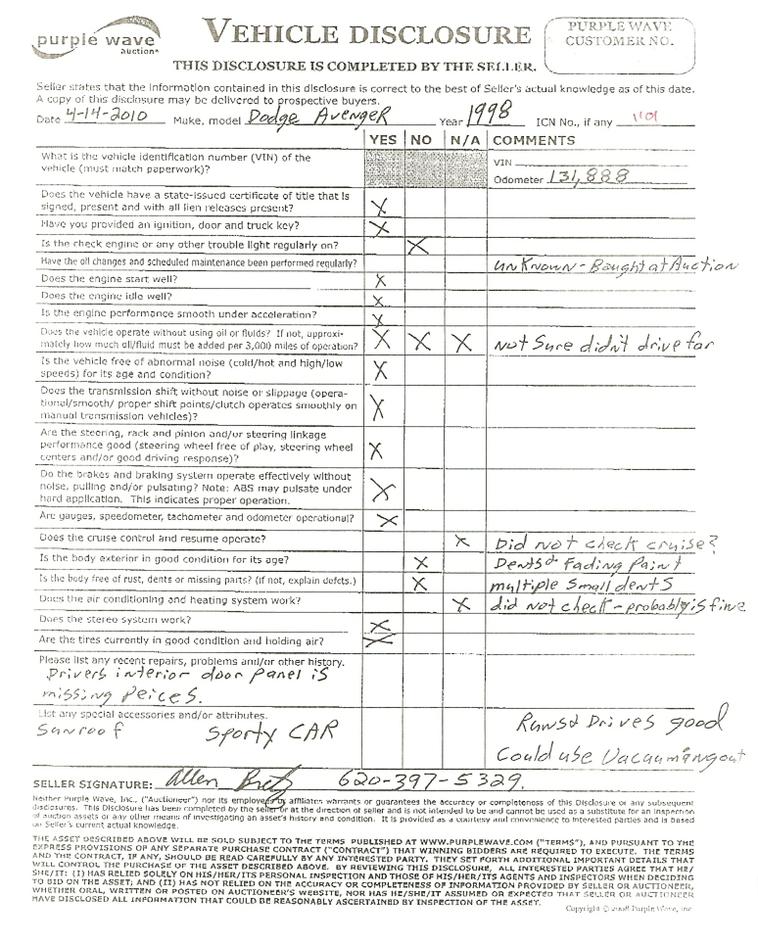 purple wave
auction®
VEHICLE DISCLOSURE
PURPLE WAVE
CUSTOMER NO.
THIS DISCLOSURE IS COMPLETED BY THE SELLER.
Seller states that the information contained in this disclosure is correct to the best of Seller's actual knowledge as of this date.
A copy of this disclosure may be delivered to prospective buyers.
Date 4-14-2010 Make, model Dodge Avenger Year 1998 ICN No., if any
YES NO N/A COMMENTS
What is the vehicle identification number (VIN) of the
vehicle (must match paperwork)?
VIN
Odometer 131,888
Does the vehicle have a state-issued certificate of title that is
signed, present and with all lien releases present? X
Have you provided an ignition, door and truck key? X
Is the check engine or any other trouble light regularly on? X
Have the oil changes and scheduled maintenance been performed regularly? unKnown - Bought at Auction
Does the engine start well? X
Does the engine idle well? X
Is the engine performance smooth under acceleration? X
Does the vehicle operate without using oil or fluids? If not, approxi-
mately how much oil/fluid must be added per 3,000 miles of operation? X X X not Sure didn't drive far
Is the vehicle free of abnormal noise (cold/hot and high/low
speeds) for its age and condition? X
Does the transmission shift without noise or slippage (opera-
tional/smooth/ proper shift points/clutch operates smoothly on
manual transmission vehicles)? X
Are the steering, rack and pinion and/or steering linkage
performance good (steering wheel free of play, steering wheel
centers and/or good driving response)? X
Do the brakes and braking system operate effectively without
noise, pulling and/or pulsating? Note: ABS may pulsate under
hard application. This indicates proper operation. X
Are gauges, speedometer, tachometer and odometer operational? X
Does the cruise control and resume operate? X Did not check cruise?
Is the body exterior in good condition for its age? X Dents & Fading Paint
Is the body free of rust, dents or missing parts? (if not, explain defcts.) X multiple Small dents
Does the air conditioning and heating system work? X did not check - probably is fine
Does the stereo system work? X
Are the tires currently in good condition and holding air? X
Please list any recent repairs, problems and/or other history.
Drivers interior door panel is
missing Peices.
List any special accessories and/or attributes.
Sunroof Sporty CAR
Runs & Drives good
Could use Vacaumangout
SELLER SIGNATURE: Allen 620-397-5329.
Neither Purple Wave, Inc., ("Auctioneer") nor its employees or affiliates warrants or guarantees the accuracy or completeness of this Disclosure or any subsequent
disclosures. This Disclosure has been completed by the seller or at the direction of seller and is not intended to and cannot be used as a substitute for an inspection
of auction assets or any other means of investigating an asset's history and condition. It is provided as a courtesy and convenience to interested parties and is based
on Seller's current actual knowledge.
THE ASSET DESCRIBED ABOVE WILL BE SOLD SUBJECT TO THE TERMS PUBLISHED AT WWW.PURPLEWAVE.COM ("TERMS"), AND PURSUANT TO THE
EXPRESS PROVISIONS OF ANY SEPARATE PURCHASE CONTRACT ("CONTRACT") THAT WINNING BIDDERS ARE REQUIRED TO EXECUTE. THE TERMS
AND THE CONTRACT, IF ANY, SHOULD BE READ CAREFULLY BY ANY INTERESTED PARTY. THEY SET FORTH ADDITIONAL IMPORTANT DETAILS THAT
WILL CONTROL THE PURCHASE OF THE ASSET DESCRIBED ABOVE. BY REVIEWING THIS DISCLOSURE, ALL INTERESTED PARTIES AGREE THAT HE/
SHE/IT: (I) HAS RELIED SOLELY ON HIS/HER/ITS PERSONAL INSPECTION AND THOSE OF HIS/HER/ITS AGENTS AND INSPECTORS WHEN DECIDING
TO BID ON THE ASSET, AND (II) HAS NOT RELIED ON THE ACCURACY OR COMPLETENESS OF INFORMATION PROVIDED BY SELLER OR AUCTIONEER,
WHETHER ORAL, WRITTEN OR POSTED ON AUCTIONEER'S WEBSITE, NOR HAS HE/SHE/IT ASSUMED OR EXPECTED THAT SELLER OR AUCTIONEER
HAVE DISCLOSED ALL INFORMATION THAT COULD BE REASONABLY ASCERTAINED BY INSPECTION OF THE ASSET.
Copyright © 2008 Purple Wave, Inc.